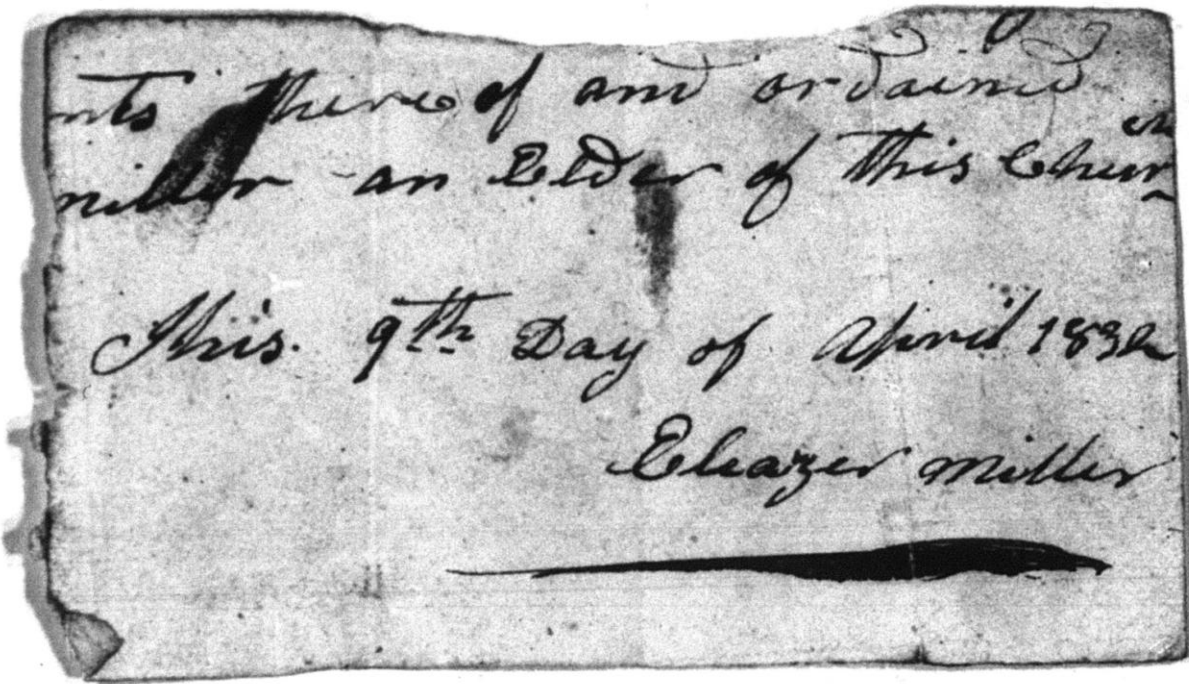 nts thereof and ordained
miller an Elder of this Church
This. 9th Day of April 1832
Eleazer Miller